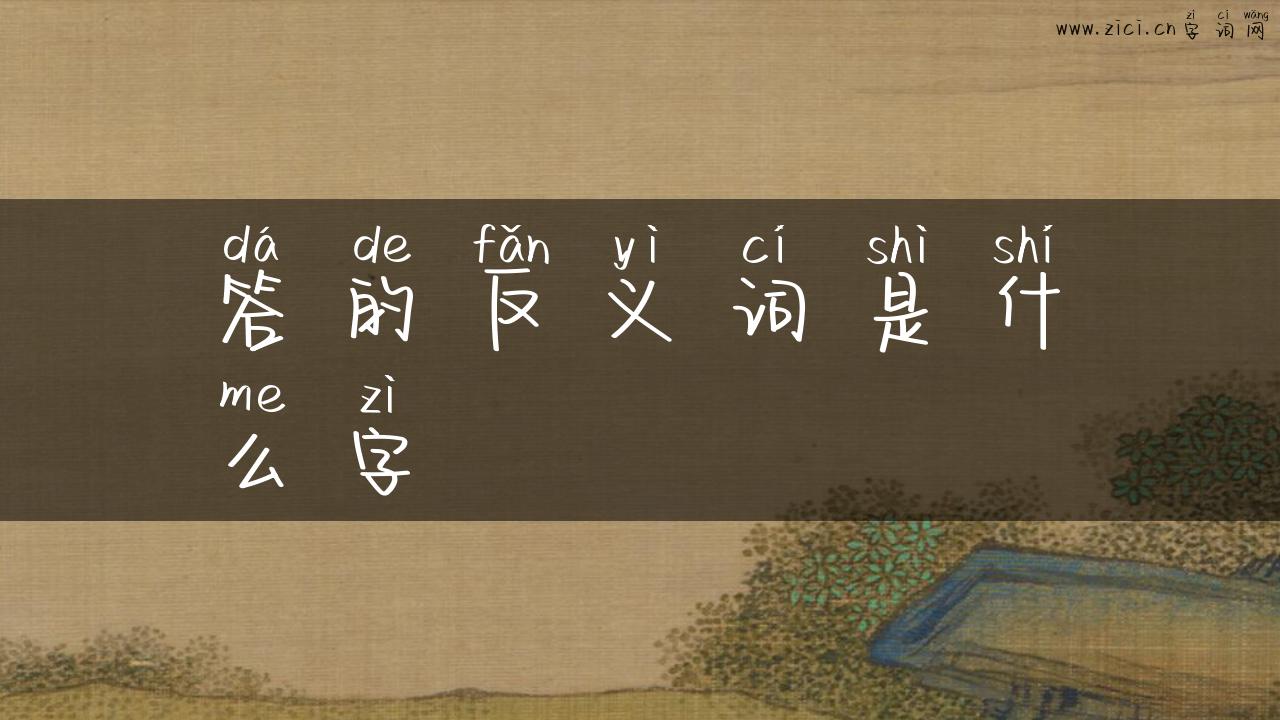 zì cí wǎng
www.zici.cn 字词网
dá de fǎn yì cí shì shí
答的反义词是什
me zì
么字